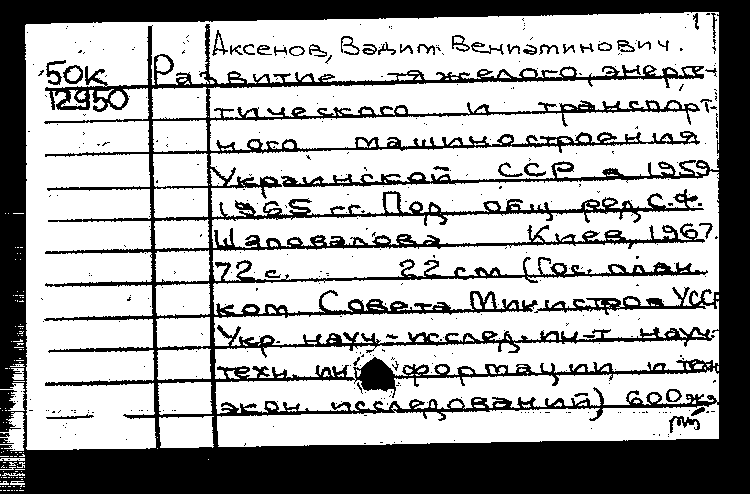 Аксенов, Вадим Вениаминович.
50к Развитие тяжелого, энерге-
12950 тического и транспорт-
ного машиностроения
Украинской ССР в 1959-
1965 гг. Под общ. ред. С.Ф.
Шаповалова Киев, 1967.
72 с. 22 см (Гос. план.
ком Совета Министров УССР
Укр. науч-исслед. ин-т науч.
техн. информации и техн
экон. исследований) 600 экз